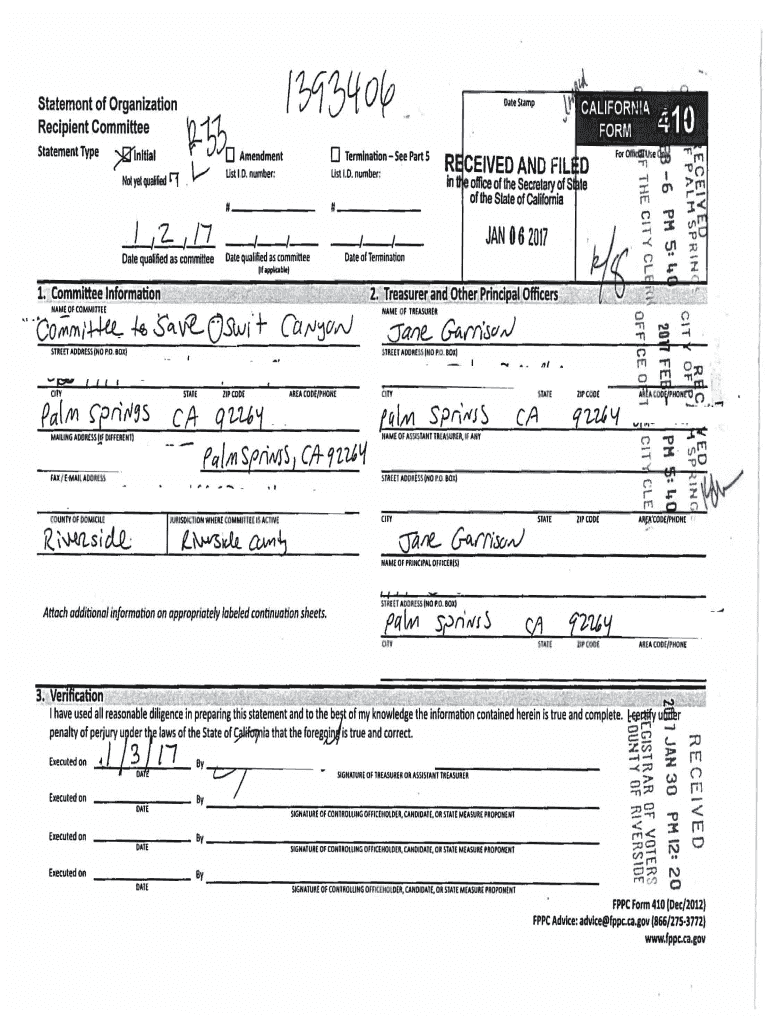 1393406
Statement of Organization
Recipient Committee
Statement Type
Initial
Not yet qualified
Amendment
List I.D. number:
#
Termination – See Part 5
List I.D. number:
#
Date Stamp
RECEIVED AND FILED
in the office of the Secretary of State
of the State of California
JAN 06 2017
CALIFORNIA
FORM 410
For Official Use Only
1, 2, 17
Date qualified as committee
Date qualified as committee
(If applicable)
Date of Termination
1. Committee Information
NAME OF COMMITTEE
Committee to Save Oswit Canyon
STREET ADDRESS (NO P.O. BOX)
CITY STATE ZIP CODE AREA CODE/PHONE
Palm Springs CA 92264
MAILING ADDRESS (IF DIFFERENT)
Palm Springs, CA 92264
FAX / E-MAIL ADDRESS
COUNTY OF DOMICILE JURISDICTION WHERE COMMITTEE IS ACTIVE
Riverside Riverside County
Attach additional information on appropriately labeled continuation sheets.
2. Treasurer and Other Principal Officers
NAME OF TREASURER
Jane Garrison
STREET ADDRESS (NO P.O. BOX)
CITY STATE ZIP CODE AREA CODE/PHONE
Palm Springs CA 92264
NAME OF ASSISTANT TREASURER, IF ANY
STREET ADDRESS (NO P.O. BOX)
CITY STATE ZIP CODE AREA CODE/PHONE
Jane Garrison
NAME OF PRINCIPAL OFFICER(S)
STREET ADDRESS (NO P.O. BOX)
Palm Springs CA 92264
CITY STATE ZIP CODE AREA CODE/PHONE
3. Verification
I have used all reasonable diligence in preparing this statement and to the best of my knowledge the information contained herein is true and complete. I certify under
penalty of perjury under the laws of the State of California that the foregoing is true and correct.
Executed on 1/3/17 By
DATE SIGNATURE OF TREASURER OR ASSISTANT TREASURER
Executed on By
DATE SIGNATURE OF CONTROLLING OFFICEHOLDER, CANDIDATE, OR STATE MEASURE PROPONENT
Executed on By
DATE SIGNATURE OF CONTROLLING OFFICEHOLDER, CANDIDATE, OR STATE MEASURE PROPONENT
Executed on By
DATE SIGNATURE OF CONTROLLING OFFICEHOLDER, CANDIDATE, OR STATE MEASURE PROPONENT
RECEIVED
2017 JAN 30 PM 12:20
REGISTRAR OF VOTERS
COUNTY OF RIVERSIDE
FPPC Form 410 (Dec/2012)
FPPC Advice: advice@fppc.ca.gov (866/275-3772)
www.fppc.ca.gov